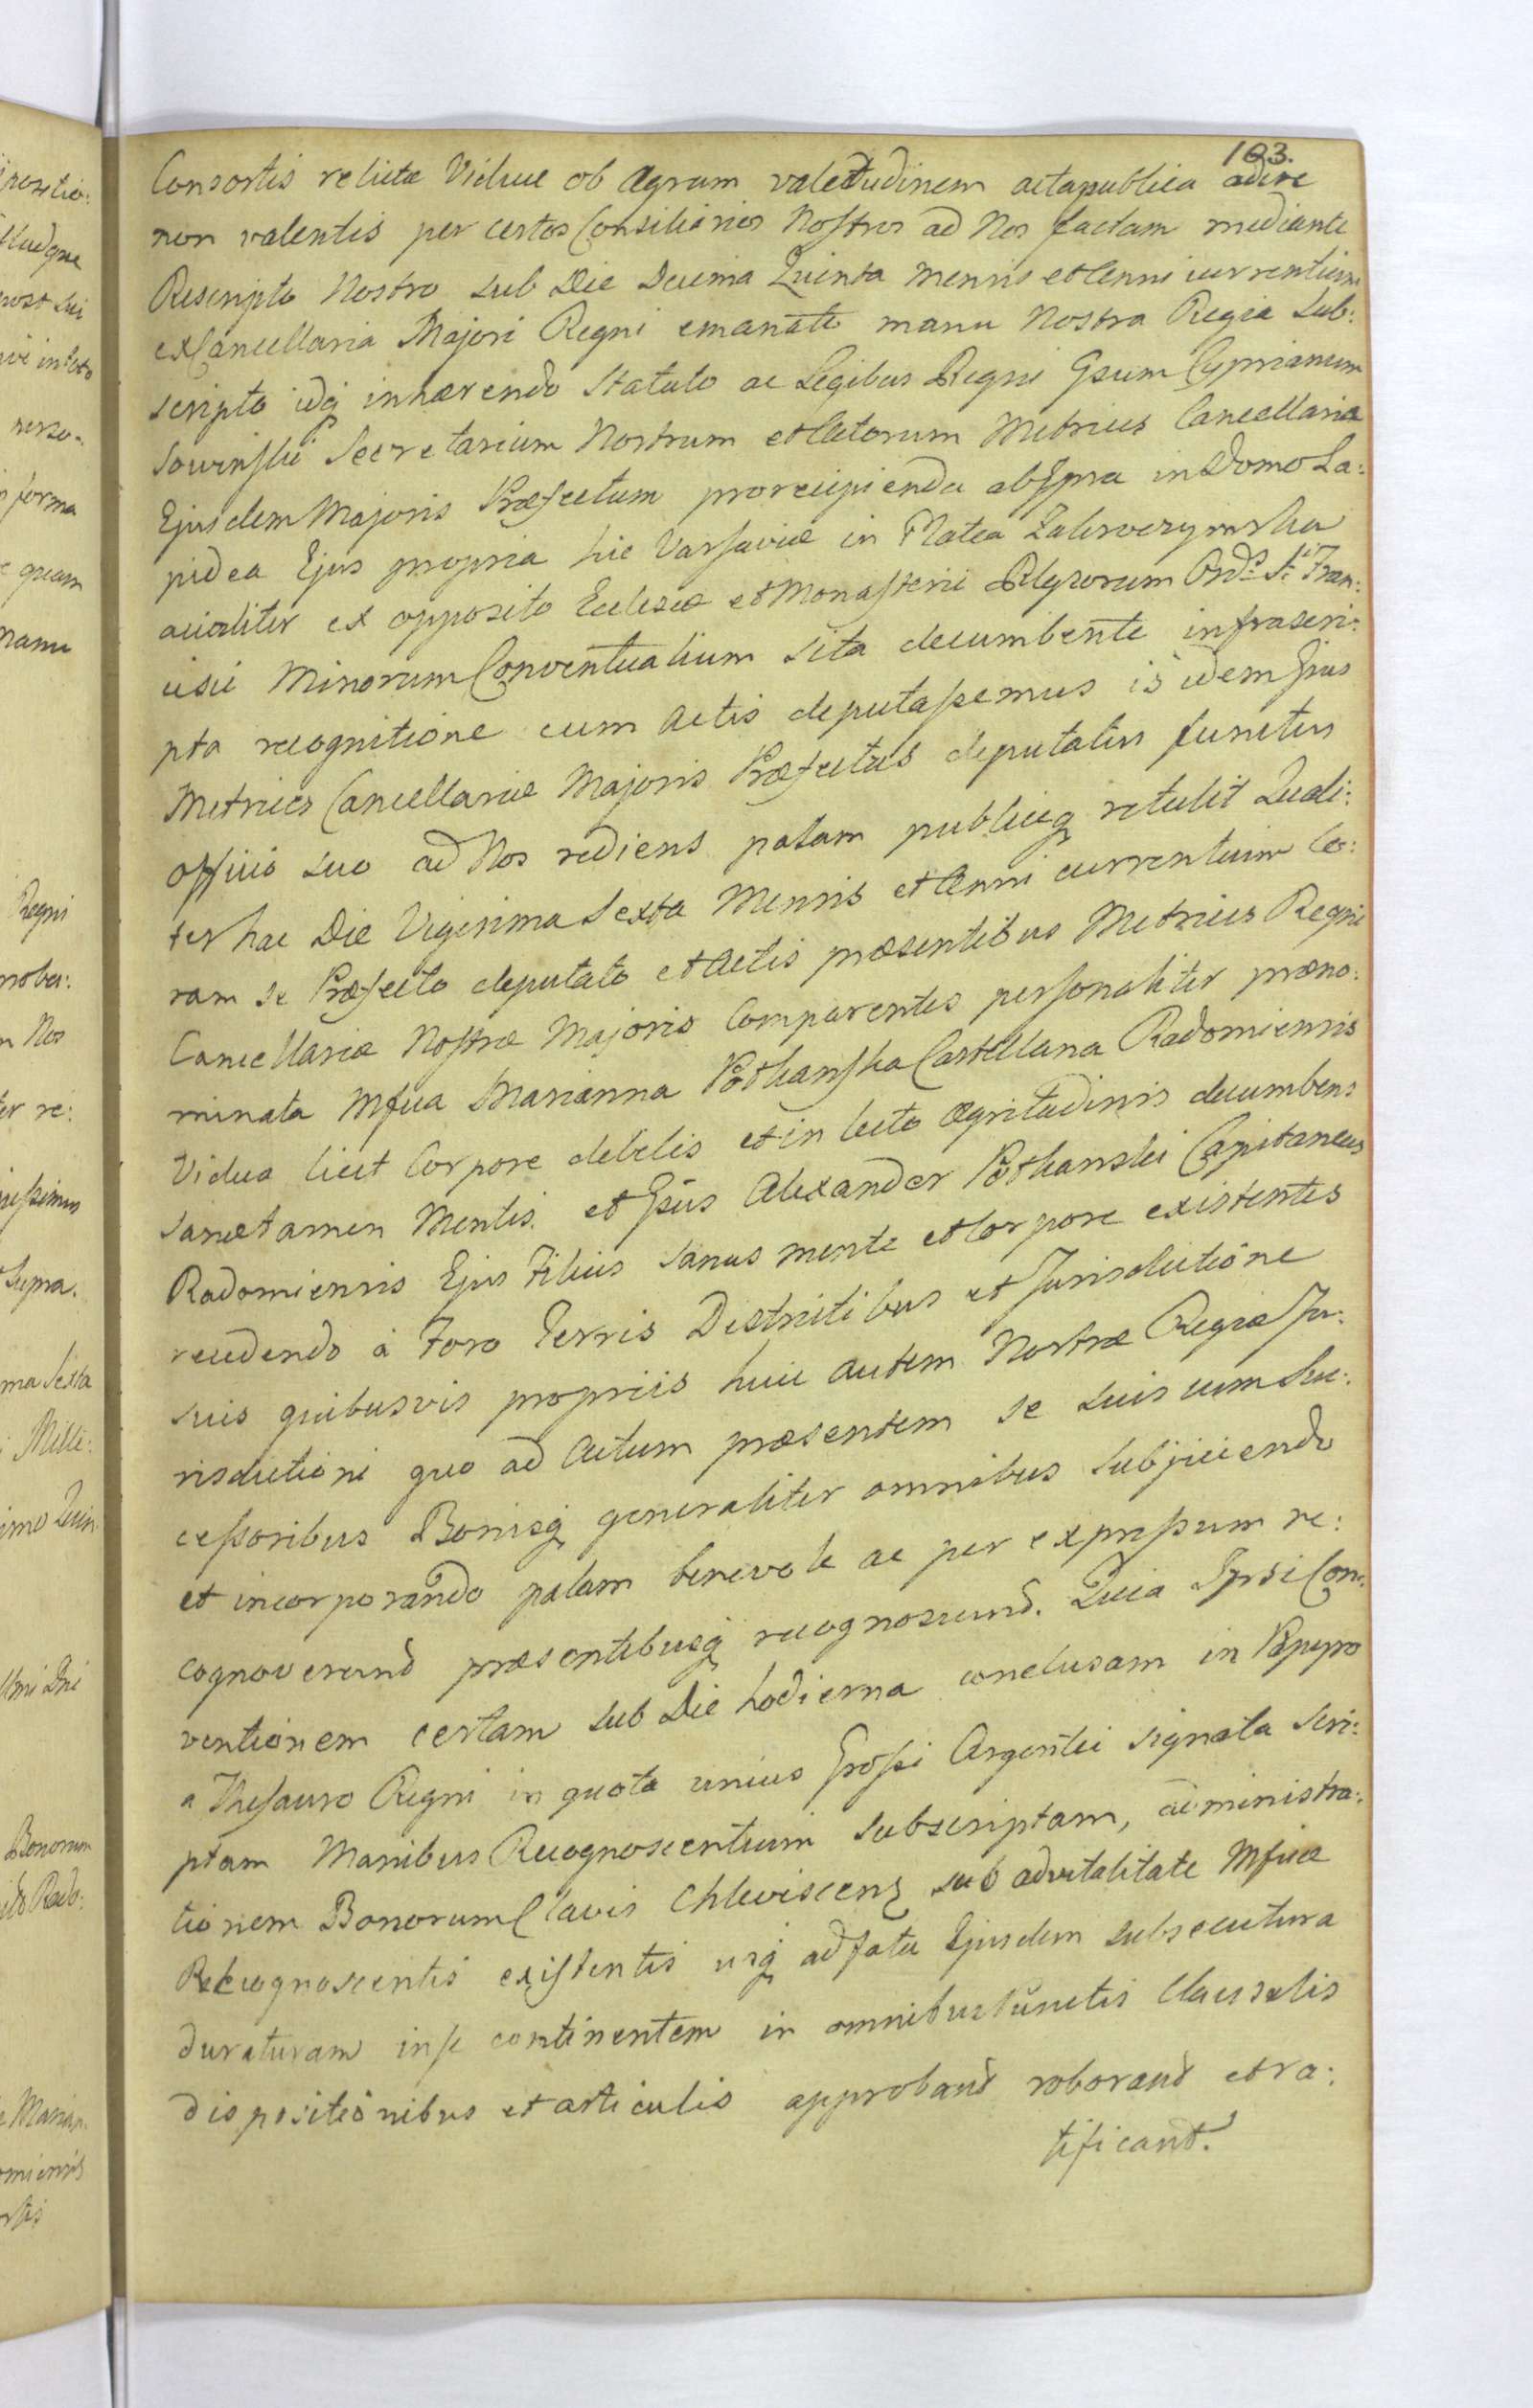 103.
Consortis relictæ Viduæ ob Ægram valetudinem acta publica adire
non valentis per certos Consiliarios Nostros ad Nos factam mediante
Rescripto Nostro sub Die Decima Quinta Mensis et Anni currentium
ex Cancellaria Majori Regni emanato manu Nostra Regia Sub:
scripto idq inhærendo Statuto ac Legibus Regni Gsum Cyprianum
Sowinski Secretarium Nostrum et Actorum Metrices Cancellariæ
Ejusdem Majoris Præfectum pro recipienda ab Ipsa in Domo La:
pidea Ejus propria hic Varsaviæ in Platea Zakroczymska
aciialiter ex opposito Ecclesiæ et Monasterii Rlgsorum Ordis Sti Fran:
cisci Minorum Conventualium sita decumbente infrascri:
pta recognitione cum Actis deputassemus is idem Gsus
Metrices Cancellariæ Majoris Præfectus deputatus functus
officio suo ad Nos rediens palam publiceq retulit Quali:
ter hac Die Vigesima Sexta Mensis et Anni currentium Co:
ram se Præfecto deputato et Actis præsentibus Metrices Regni
Cancellariæ Nostræ Majoris Comparentes personaliter præno:
minata Mfica Marianna Potkanska Castellana Radomiensis
Vidua licet Corpore debilis et in lecto ægritudinis decumbens
sanæ tamen Mentis. et Gsus Alexander Potkanski Capitaneus
Radomiensis Ejus Filius sanus mente et Corpore existentes
recedendo à Foro Terris Districtibus et Jurisdictione
suis quibusvis propriis huic autem Nostræ Regiæ Ju:
risdictioni quo ad Actum præsentem se suis cum Suc:
cessoribus Bonisq generaliter omnibus subjiciendo
et incorporando palam benevole ac per expressum re:
cognoverund præsentibusq recognoscund. Quia Ipsi Con:
ventionem certam sub Die hodierna conclusam in Papyro
a Thesauro Regni in quota unius Grossi Argentei signata scri:
ptam Manibus Recognoscentium subscriptam, administra:
tionem Bonorum Clavis Chlewiscens sub advitalitate Mficæ
Recognoscentis existentis usq ad fata Ejusdem subsecutura
duraturam in se continentem in omnibus Punctis Clausulis
dispositionibus et articulis approband roborand et ra:
tificand.